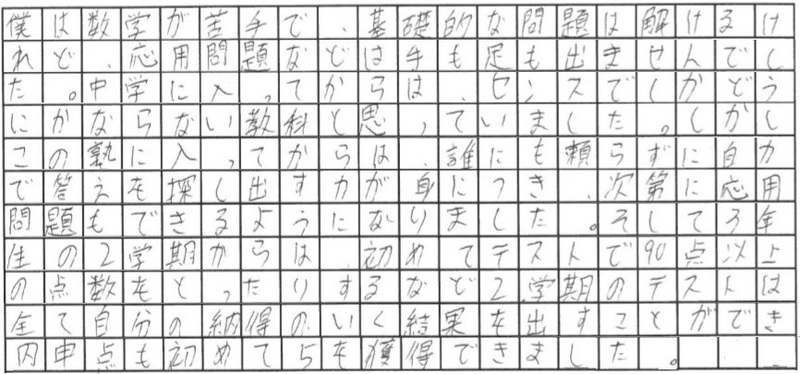 僕は数学が苦手で、基礎的な問題は解けるけ
れど、応用問題などは手も足も出ませんでし
た。中学に入ってからは、センスでしかどう
にかならない教科と思っていました。しかし
この塾に入ってからは、誰にも頼らずに自力
で答えを探し出す力が身につき、次第に応用
問題もできるようになりました。そして3年
生の2学期からは、初めてテストで90点以上
の点数をとったりするなど2学期のテストは
全て自分の納得のいく結果を出すことができ
内申点も初めて5を獲得できました。